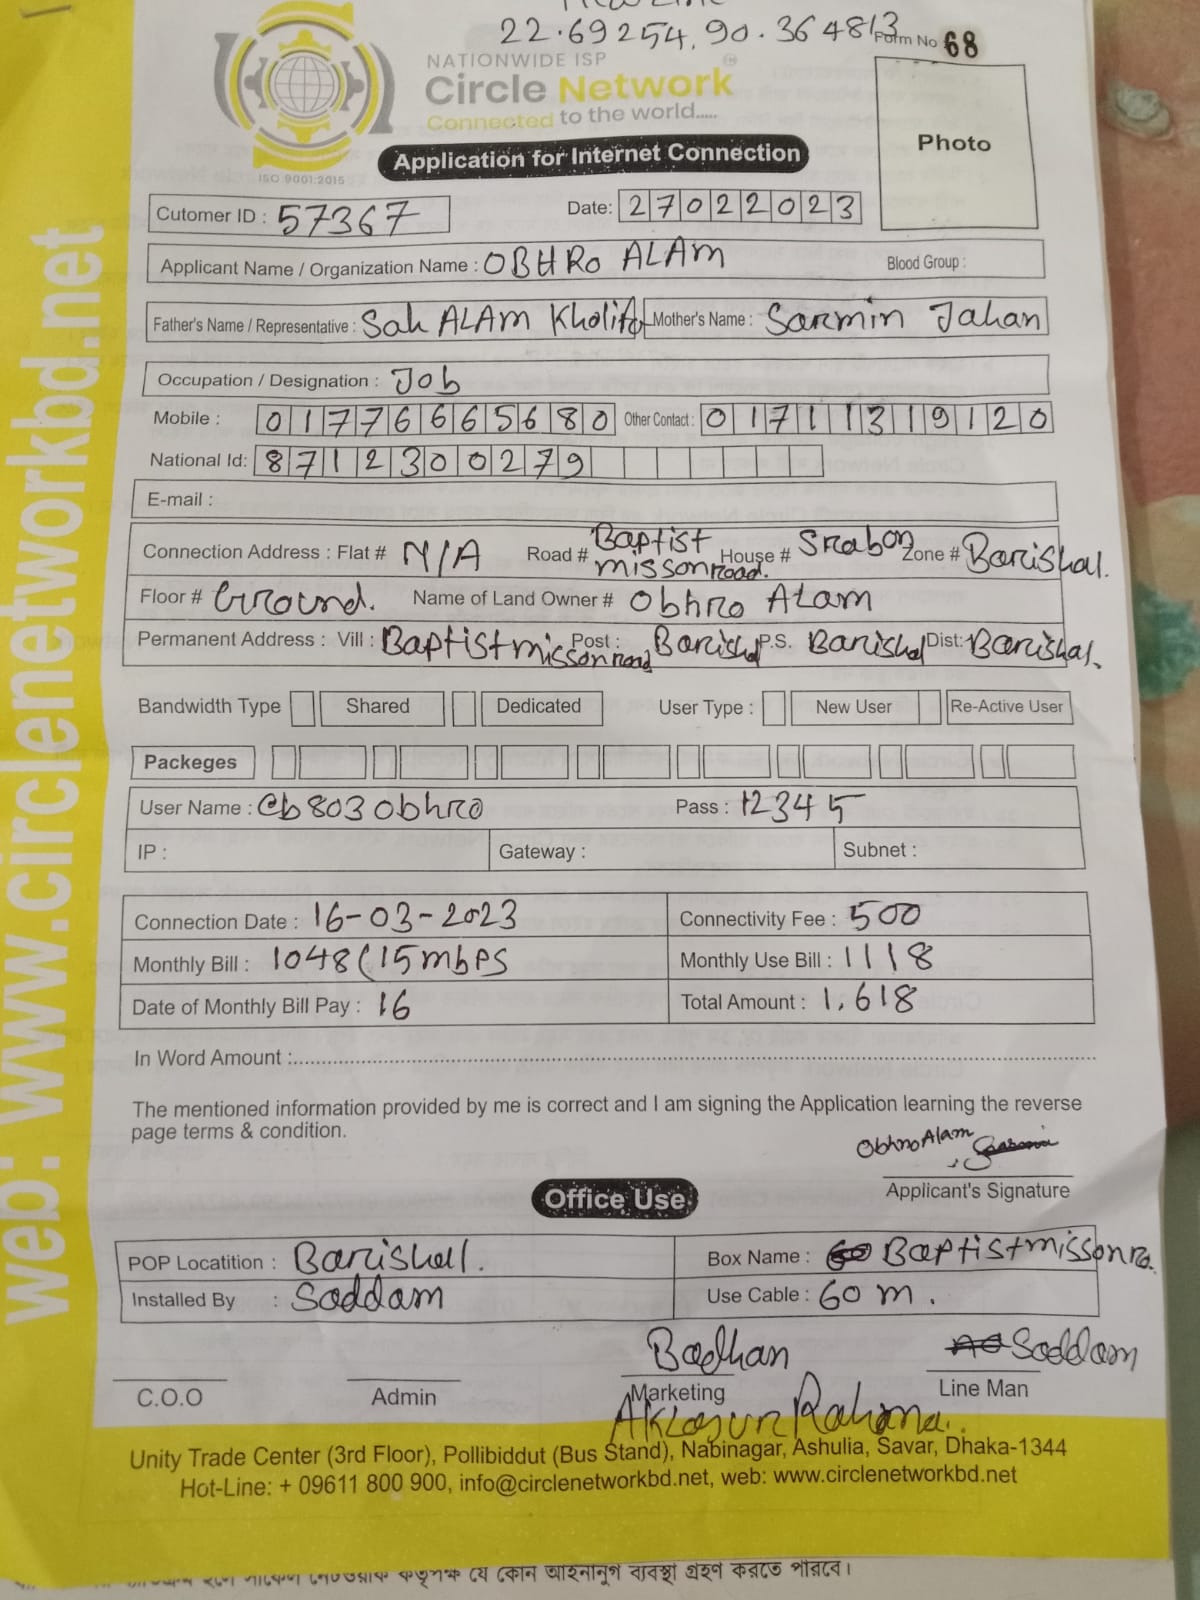 22.69254, 90.364813
Form No 68
NATIONWIDE ISP
Circle Network
Connected to the world.....
ISO 9001:2015
Application for Internet Connection
Photo
Cutomer ID : 57367
Date: 27022023
Applicant Name / Organization Name : OBHRO ALAM Blood Group :
Father's Name / Representative : Sah ALAM Kholifa Mother's Name : Sarmin Jahan
Occupation / Designation : Job
Mobile : 01776665680 Other Contact : 01711319120
National Id: 8712300279
E-mail :
Connection Address : Flat # N/A Road # Baptist misson road. House # Srabon Zone # Barishal.
Floor # Ground. Name of Land Owner # Obhro Alam
Permanent Address : Vill : Baptist misson road Post : Barishal P.S. Barishal Dist: Barishal.
Bandwidth Type Shared Dedicated User Type : New User Re-Active User
Packeges
User Name : cb803obhro Pass : 12345
IP : Gateway : Subnet :
Connection Date : 16-03-2023 Connectivity Fee : 500
Monthly Bill : 1048 (15mbps Monthly Use Bill : 1118
Date of Monthly Bill Pay : 16 Total Amount : 1,618
In Word Amount :
The mentioned information provided by me is correct and I am signing the Application learning the reverse
page terms & condition.
Obhro Alam
Applicant's Signature
Office Use
POP Locatition : Barishal. Box Name : Baptist misson ro.
Installed By : Saddam Use Cable : 60 m.
Badhan Saddam
C.O.O Admin Marketing Line Man
Unity Trade Center (3rd Floor), Pollibiddut (Bus Stand), Nabinagar, Ashulia, Savar, Dhaka-1344
Hot-Line: + 09611 800 900, info@circlenetworkbd.net, web: www.circlenetworkbd.net
web: www.circlenetworkbd.net
যে কোন আইনানুগ ব্যবস্থা গ্রহণ করতে পারবে।